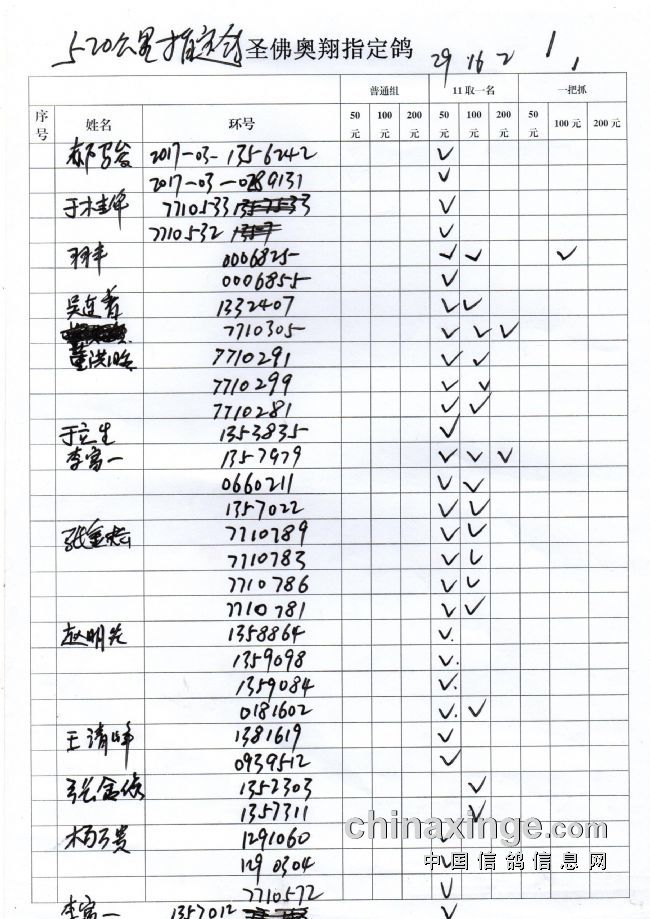 520公里指定鸽 圣佛奥翔指定鸽 29 16 2 1 1
普通组 11取一名 一把抓
序号 姓名 环号 50元 100元 200元 50元 100元 200元 50元 100元 200元
2017-03-1356242 ✓
2017-03-0289131 ✓
于桂华 7710533 ✓
7710532 ✓
翔丰 0006825 ✓ ✓ ✓
0006855 ✓
吴连春 1332407 ✓ ✓
7710305 ✓ ✓ ✓
董洪 7710291 ✓ ✓
7710299 ✓ ✓
7710281 ✓ ✓
于立生 1353835 ✓
李富一 1357979 ✓ ✓ ✓
0660211 ✓ ✓
1357022 ✓ ✓
张金松 7710789 ✓ ✓
7710783 ✓ ✓
7710786 ✓ ✓
7710781 ✓ ✓
赵明先 1358864 ✓
1359098 ✓
1359084 ✓
0181602 ✓ ✓
王清峰 1381619 ✓
0939512 ✓
张金 1352303 ✓
1357311 ✓
杨万贵 1291060 ✓
1290304 ✓
7710572 ✓
李富一 1357012 ✓
chinaxinge.com
中国信鸽信息网